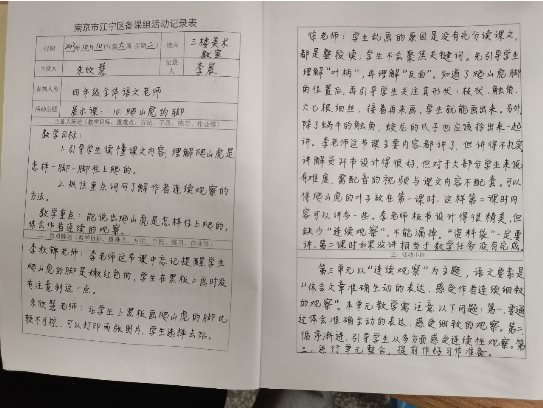 南京市江宁区备课组活动记录表
时间
2023年10月10日(第六周 星期二)
地点
三楼美术
教室
主持人
朱欣慧
记录
人
李晨
参加人员
四年级全体语文老师
活动主题
展示课：10.爬山虎的脚
一、主备人阐述（教学目标、重难点、方法、手段、练习、作业等）
教学目标：
1.引导学生读懂课文内容，理解爬山虎是
怎样一脚一脚往上爬的。
2.抓住重点词句了解作者连续观察的
方法。
教学重点：能说出爬山虎是怎样往上爬的，
体会作者连续的观察。
二、互动概述（教学目标、重难点、方法、手段、练习、作业等）
李秋锦老师：李老师这节课中忘记提醒学生
爬山虎的脚是嫩红色的，学生在黑板上画时没
有注意到这一点。
朱欣慧老师：让学生上黑板画爬山虎的脚比
较不可控，可以打印两张图片，学生选择去贴。
老师：学生乱画的原因是没有充分读课文，
都是整段读，学生不会聚焦关键词。先引导学生
理解“叶柄”，再理解“反面”。知道了爬山虎脚
的位置后，再引导学生关注其形状：枝状、触角、
六七根细丝，接着再来画，学生就能画出来。另外
除了蜗牛的触角，蛟龙的爪子也应该拎出来一起
讲。李老师这节课主要内容都讲了，但讲得不扎实
讲解交环节设计得很好，但对于大部分学生来说
有难度，需配音的视频与课文内容不配套。可以
将爬山虎的叶子放在第一课时，这样第二课时内
容可以讲少一些。李老师板书设计得很精美，但
缺少“连续观察”，不能漏掉。“资料袋”一定要
讲，第二课时如果没讲相当于教学任务没有完成。
三、活动小结
第三单元以“连续观察”为主题，语文要素是
“体会文章准确生动的表达，感受作者连续细致
的观察”。本单元教学需注意以下问题：第一，要通
过体会准确生动的表达，感受细致的观察。第二，
循序渐进，引导学生从多方面感受连续性观察。第
三，进行单元整合，提前作好习作准备。